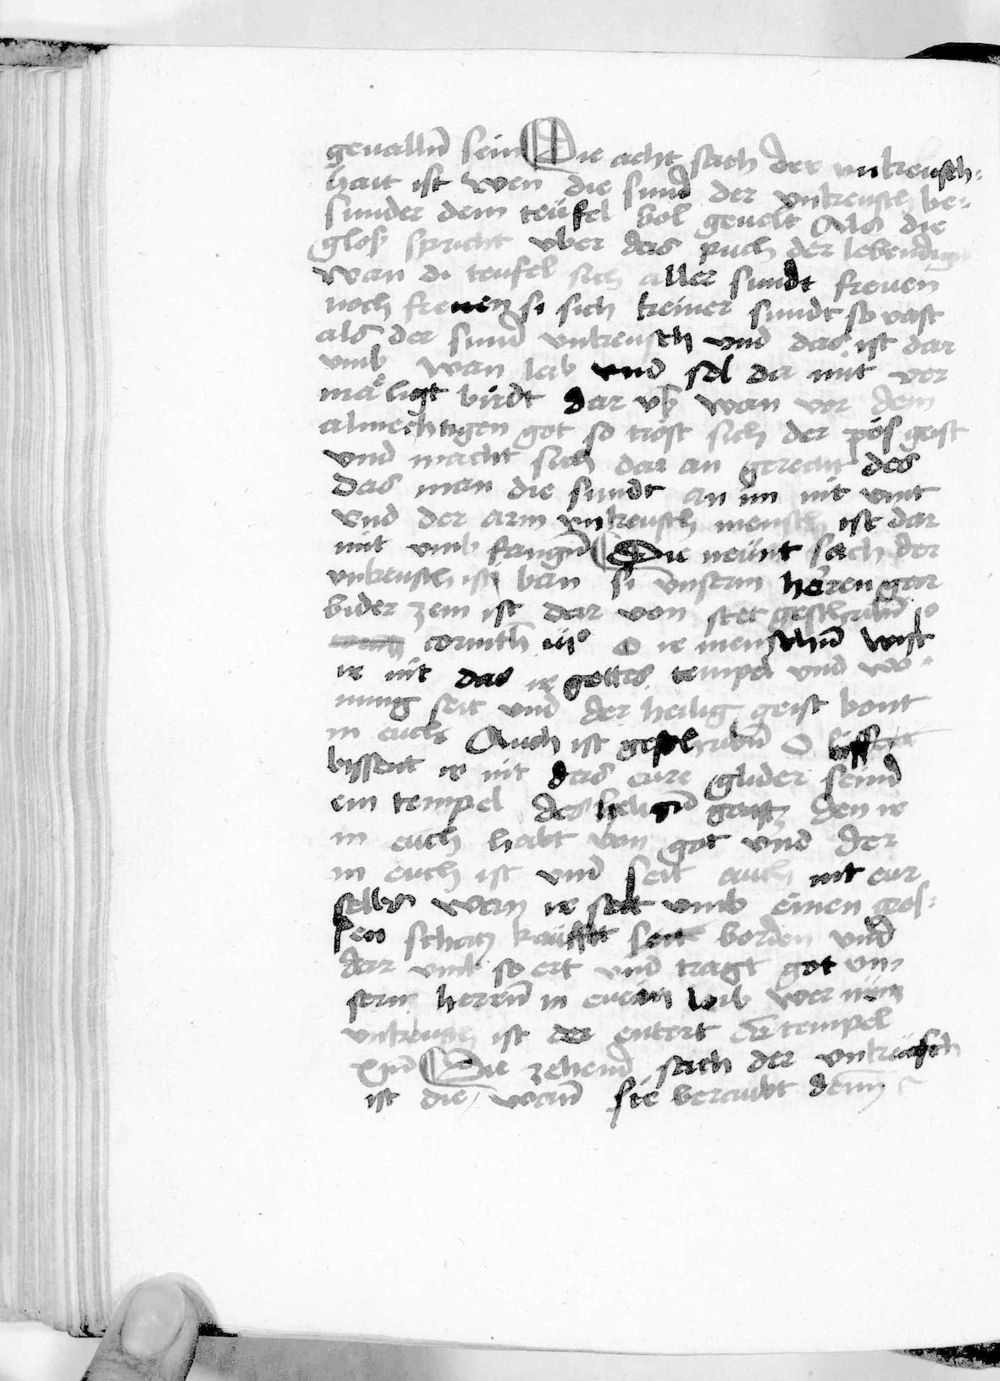 geuallñ sein Die acht sach der vnkeusch-
hait ist wen die sund der vnkeusch be-
sunder dem teüfel bol geuelt Als die
glos spricht vber das puch der lebendign
wan di teufel sich aller sundt freuen
noch freuen si sich keiner sundt so vast
als der sund vnkeusch vnd das ist dar
vmb wan leib vnd sel da mit ver
mäligt birdt dar vb wan vor dem
almechtigen got so tröst sich der pös geist
vnd macht sich dar an gerecht des
das man die sundt an im nit vint
vnd der arm vnkeusch mensch ist dar
mit vmb fangñ Die neünt sach der
vnkeusch ist ban si vnserm herren gar
bider zem ist dar von stet geschribñ
corinth iijº O ir menschñ wist
ir nit das ir gottes tempel vnd wo-
nung seit vnd der heilig geist bont
in euch Auch ist geschribñ O
bissent ir nit das eure glider seind
ein tempel des heilign geistz den ir
in euch habt von got vnd der
in euch ist vnd seit auch nit eur
selbs wan ir seit vmb einen gros-
sen schatz kaufft borden vnd
dar vmb so ert vnd tragt got vn
serm herrñ in eurem leib wer nün
vnkeusch ist der entert den tempel
Die zehend sach der vnkeusch
ist die wann sie beraubt denn